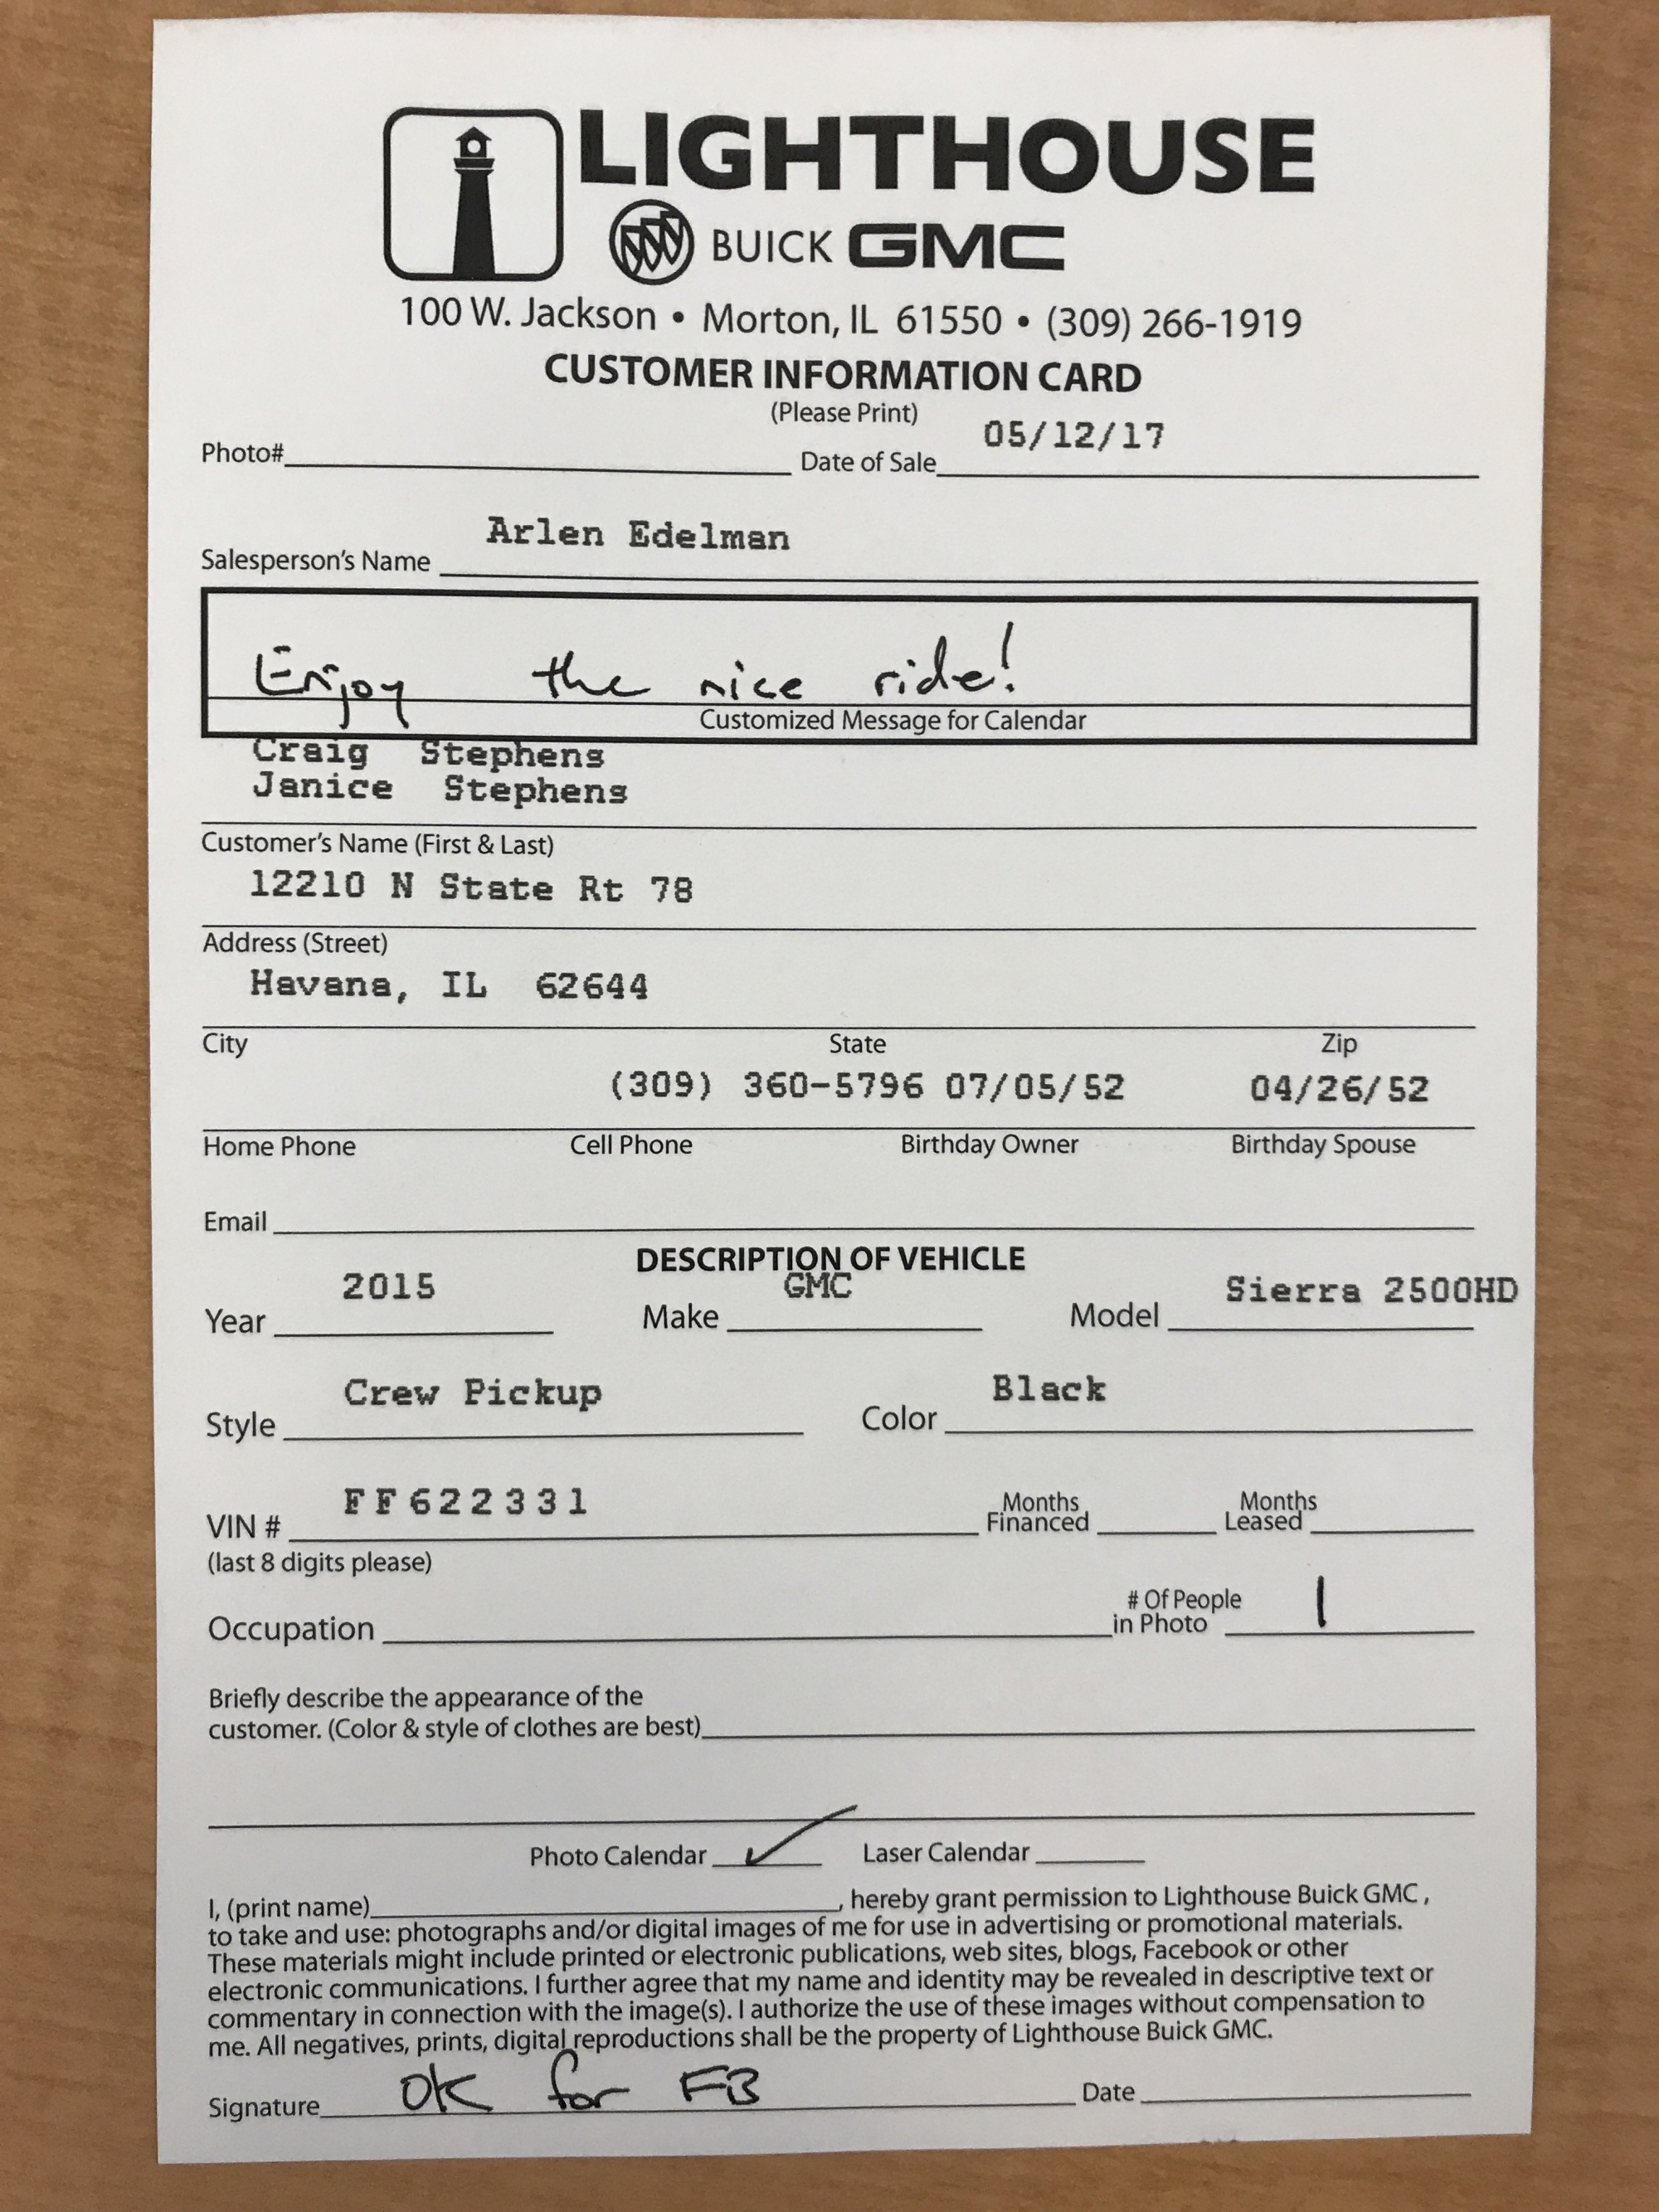 LIGHTHOUSE
BUICK GMC
100 W. Jackson • Morton, IL 61550 • (309) 266-1919
CUSTOMER INFORMATION CARD
(Please Print)
Photo# Date of Sale 05/12/17
Salesperson's Name Arlen Edelman
Enjoy the nice ride!
Customized Message for Calendar
Craig Stephens
Janice Stephens
Customer's Name (First & Last)
12210 N State Rt 78
Address (Street)
Havana, IL 62644
City State Zip
(309) 360-5796 07/05/52 04/26/52
Home Phone Cell Phone Birthday Owner Birthday Spouse
Email
DESCRIPTION OF VEHICLE
Year 2015 Make GMC Model Sierra 2500HD
Style Crew Pickup Color Black
VIN # FF622331 Months Financed Months Leased
(last 8 digits please)
Occupation # Of People in Photo 1
Briefly describe the appearance of the
customer. (Color & style of clothes are best)
Photo Calendar ✓ Laser Calendar
I, (print name) , hereby grant permission to Lighthouse Buick GMC ,
to take and use: photographs and/or digital images of me for use in advertising or promotional materials.
These materials might include printed or electronic publications, web sites, blogs, Facebook or other
electronic communications. I further agree that my name and identity may be revealed in descriptive text or
commentary in connection with the image(s). I authorize the use of these images without compensation to
me. All negatives, prints, digital reproductions shall be the property of Lighthouse Buick GMC.
Signature OK for FB Date